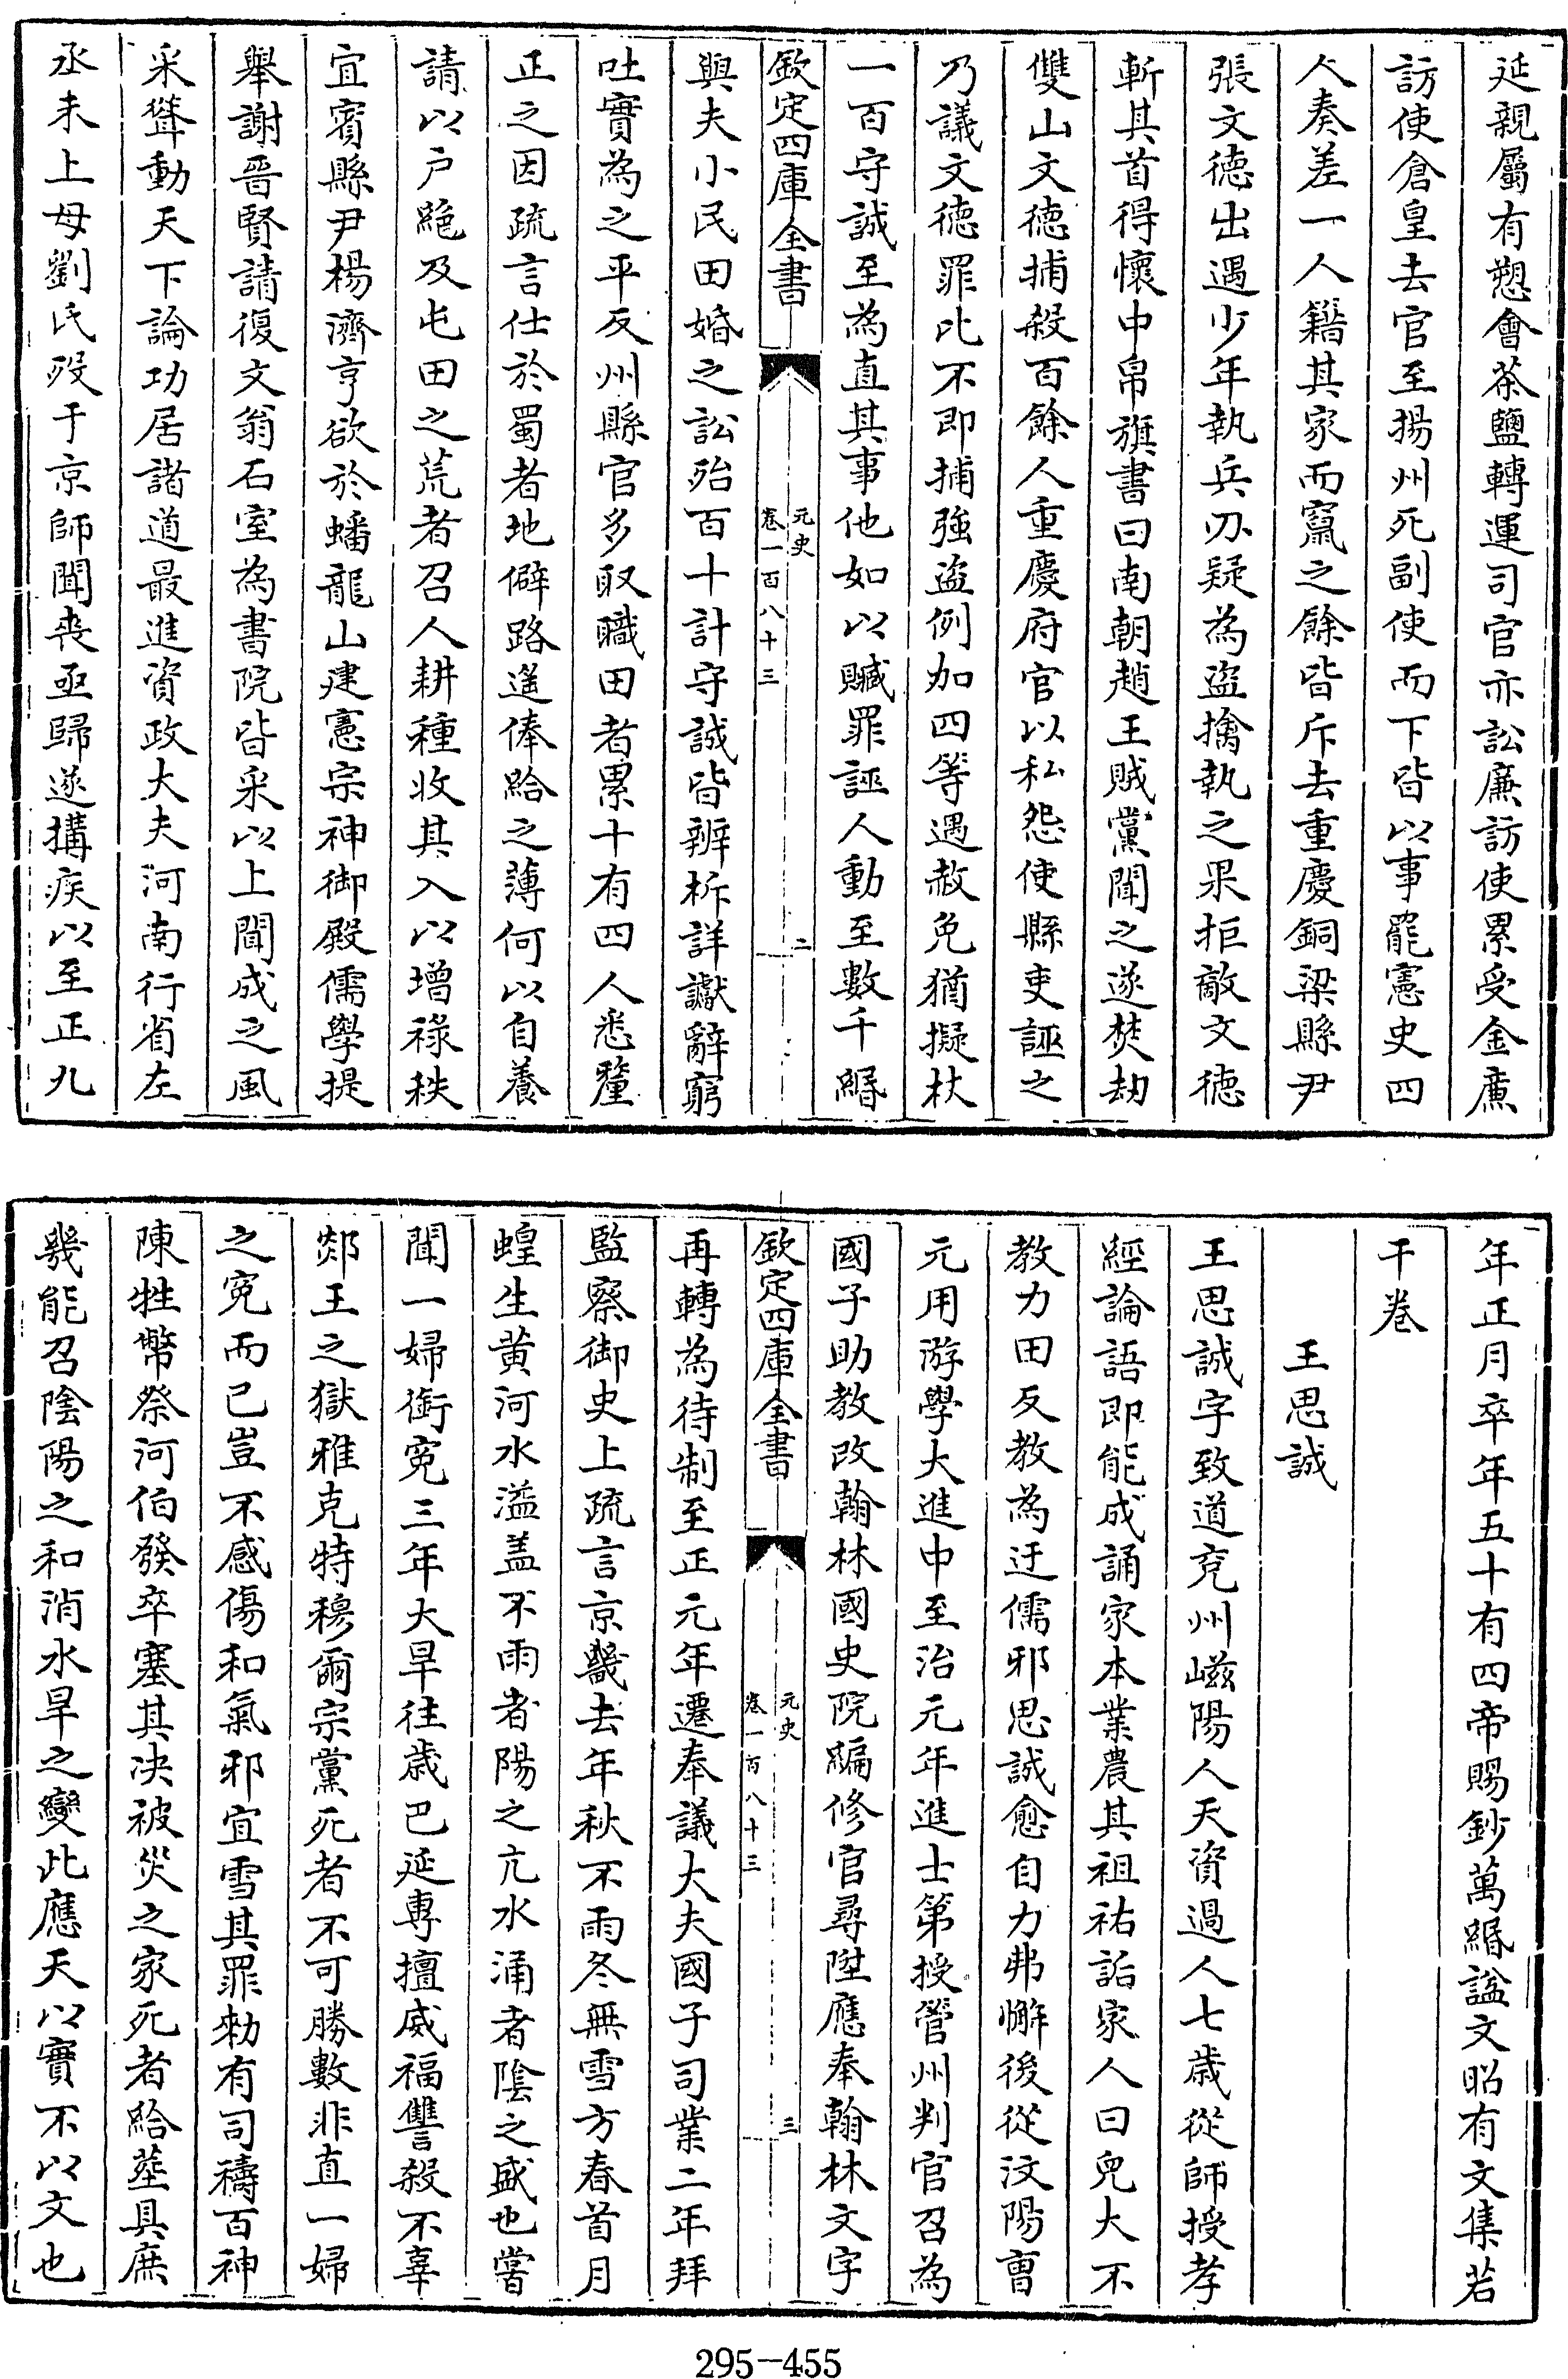 延親屬有愬會茶鹽轉運司官亦訟廉訪使累受金廉
訪使倉皇去官至揚州死副使而下皆以事罷憲史四
人奏差一人籍其家而竄之餘皆斥去重慶銅梁縣尹
張文徳出遇少年執兵刃疑為盗擒執之果拒敵文徳
斬其首得懐中帛旗書曰南朝趙王賊黨聞之遂焚劫
雙山文徳捕殺百餘人重慶府官以私怨使縣吏誣之
乃議文徳罪比不即捕強盗例加四等遇赦免猶擬杖
一百守誠至為直其事他如以贓罪誣人動至數千緡
欽定四庫全書
元史
卷一百八十三
二
與夫小民田婚之訟殆百十計守誠皆辨柝詳讞辭窮
吐實為之平反州縣官多取職田者累十有四人悉釐
正之因疏言仕於蜀者地僻路遥俸給之薄何以自養
請以户絶及屯田之荒者召人耕種收其入以增禄秩
宜賓縣尹楊濟亨欲於蟠龍山建憲宗神御殿儒學提
舉謝晉賢請復文翁石室為書院皆采以上聞成之風
采聳動天下論功居諸道最進資政大夫河南行省左
丞未上母劉氏殁于京師聞喪亟歸遂搆疾以至正九
年正月卒年五十有四帝賜鈔萬緡諡文昭有文集若
干卷
王思誠
王思誠字致道兖州嵫陽人天資過人七歳從師授孝
經論語即能成誦家本業農其祖祐詬家人曰兒大不
教力田反教為迂儒邪思誠愈自力弗懈後從汶陽曹
元用游學大進中至治元年進士第授管州判官召為
國子助教改翰林國史院編修官尋陞應奉翰林文字
欽定四庫全書
元史
卷一百八十三
三
再轉為待制至正元年遷奉議大夫國子司業二年拜
監察御史上疏言京畿去年秋不雨冬無雪方春首月
蝗生黄河水溢盖不雨者陽之亢水涌者陰之盛也嘗
聞一婦銜寃三年大旱往歳巴延專擅威福讐殺不辜
郯王之獄雅克特穆爾宗黨死者不可勝數非直一婦
之寃而已豈不感傷和氣邪宜雪其罪勅有司禱百神
陳牲幣祭河伯發卒塞其决被災之家死者給葬具庶
幾能召陰陽之和消水旱之變此應天以實不以文也
295-455